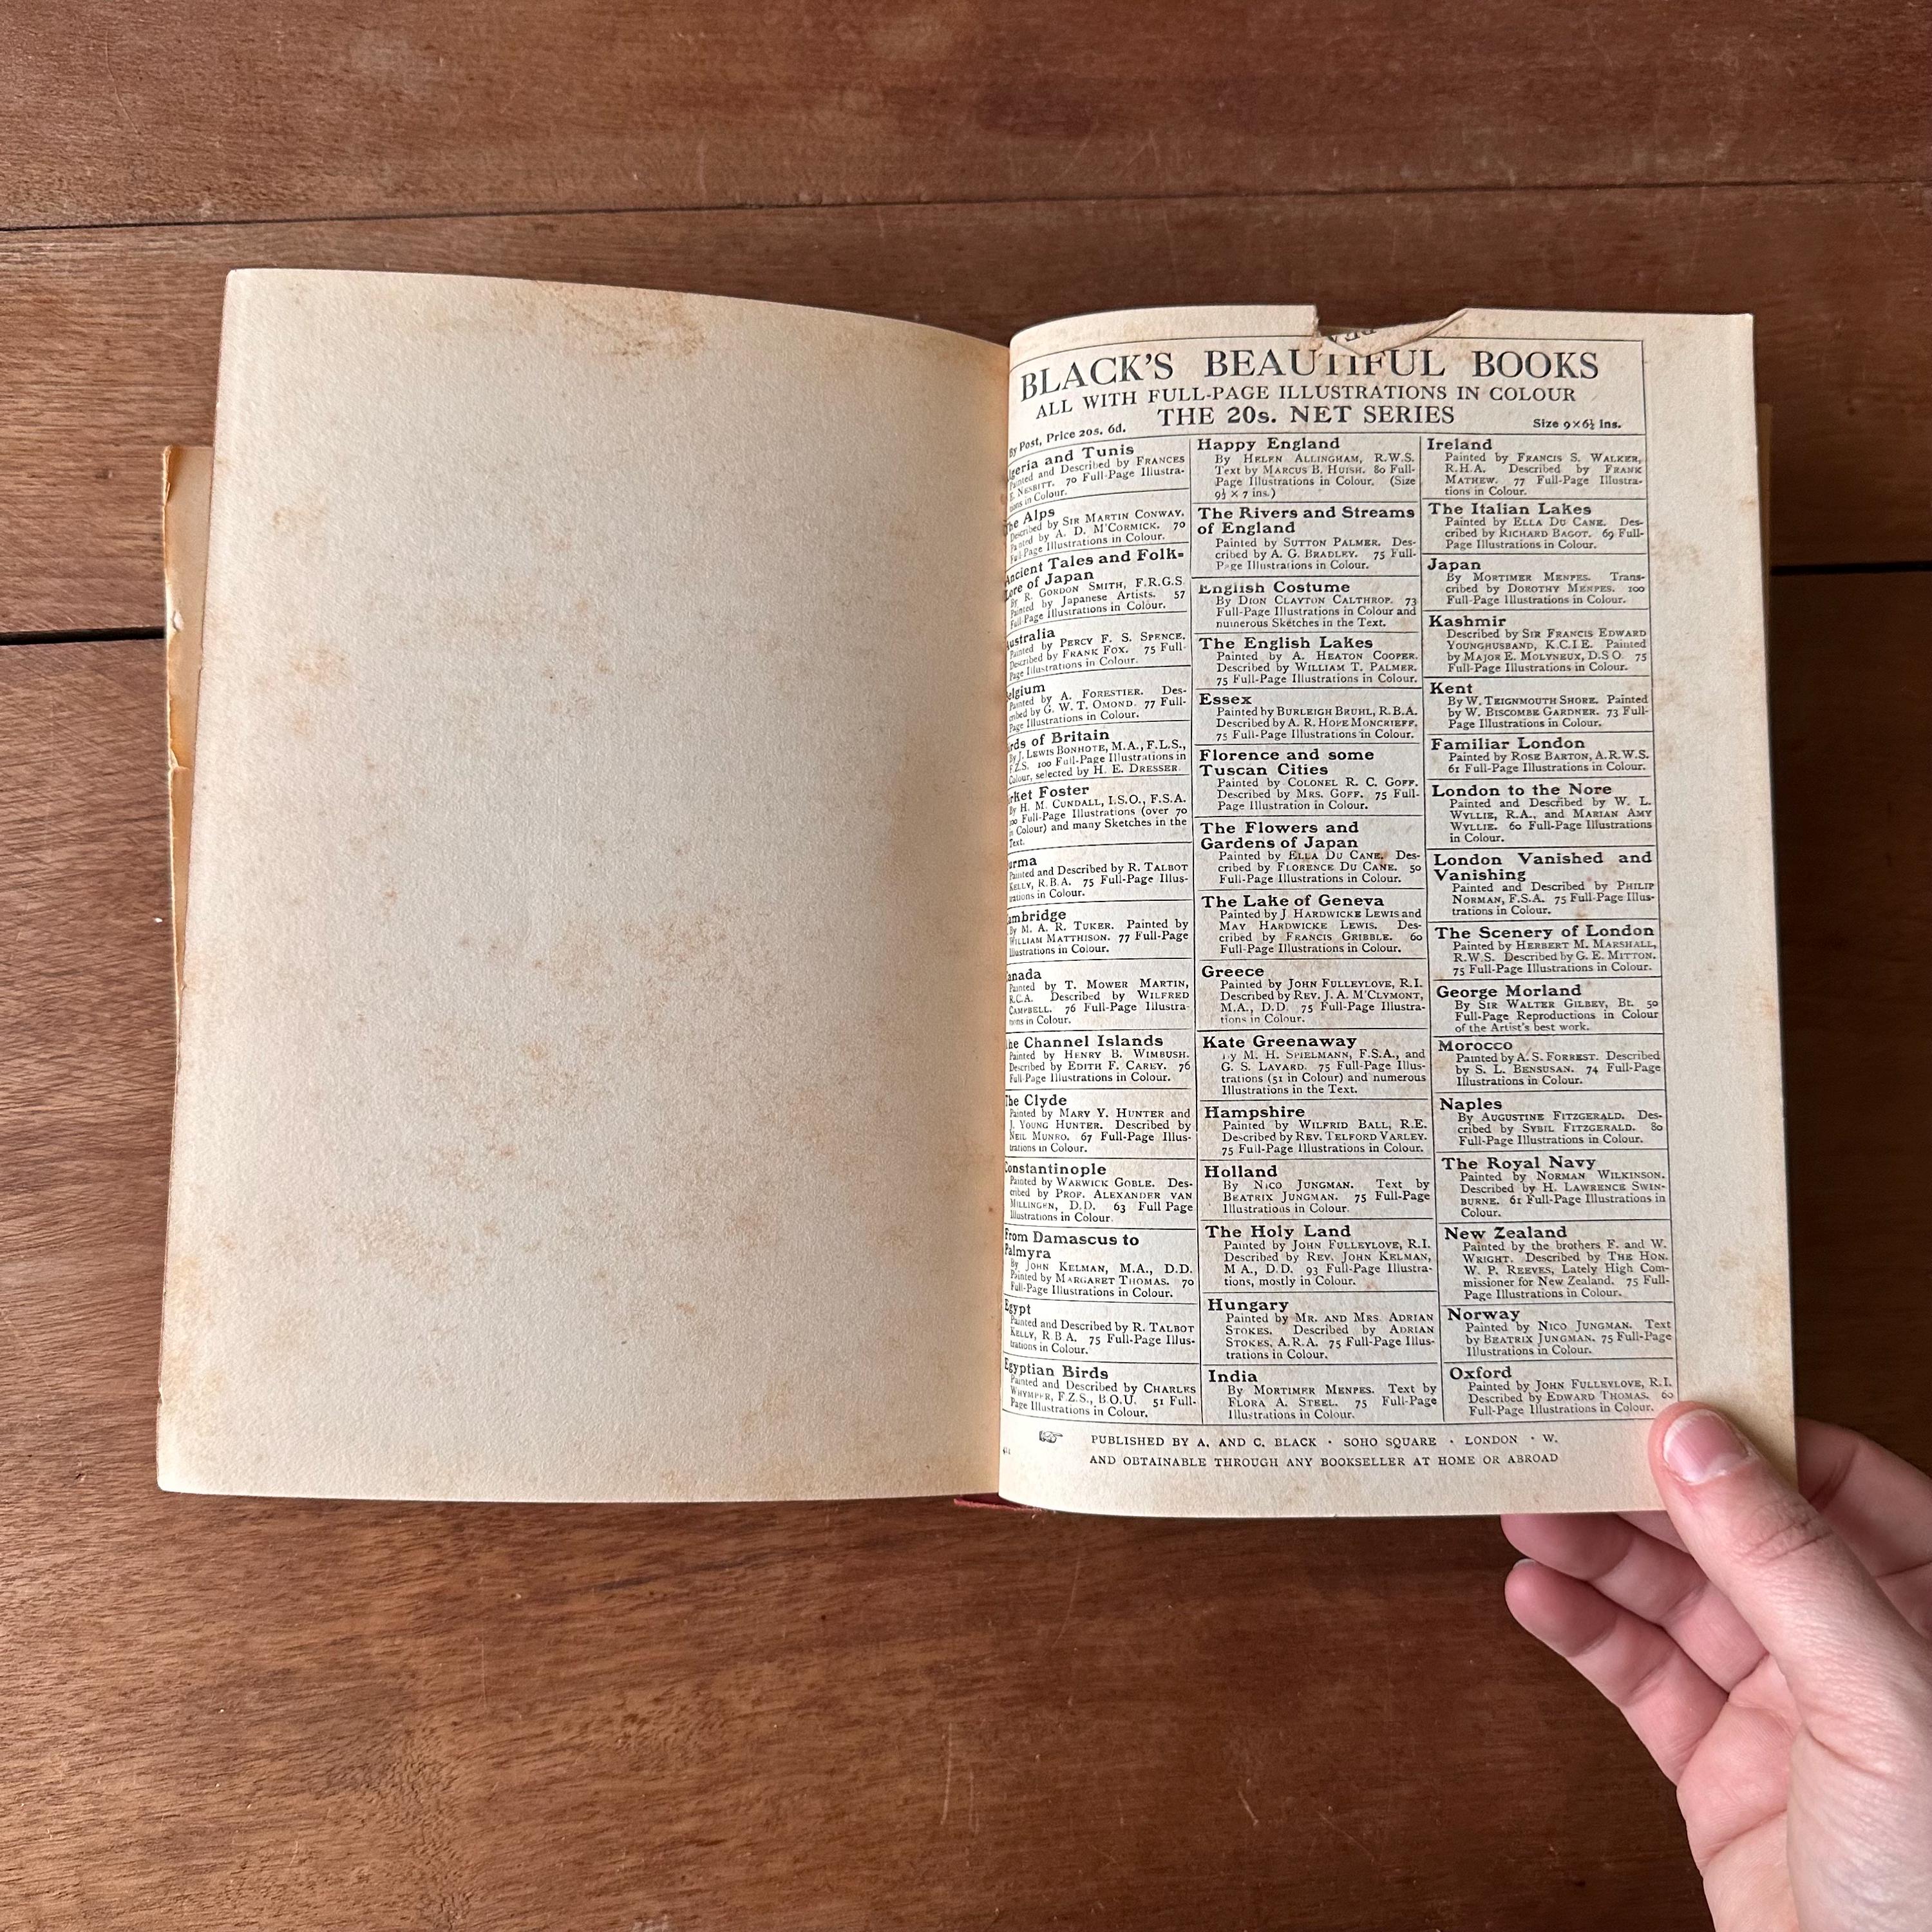 BLACK'S BEAUTIFUL BOOKS
ALL WITH FULL-PAGE ILLUSTRATIONS IN COLOUR
THE 20s. NET SERIES
By Post, Price 20s. 6d.
Size 9×6½ ins.
geria and Tunis
Painted and Described by FRANCES
E. NESBITT. 70 Full-Page Illustra-
tions in Colour.
he Alps
Described by SIR MARTIN CONWAY.
Painted by A. D. M'CORMICK. 70
Full Page Illustrations in Colour.
Ancient Tales and Folk-
Lore of Japan
By R. GORDON SMITH, F.R.G.S
Painted by Japanese Artists. 57
Full-Page Illustrations in Colour.
ustralia
Painted by PERCY F. S. SPENCE.
Described by FRANK FOX. 75 Full-
Page Illustrations in Colour.
elgium
Painted by A. FORESTIER. Des-
cribed by G. W. T. OMOND. 77 Full-
Page Illustrations in Colour.
rds of Britain
By J. LEWIS BONHOTE, M.A., F.L.S.,
F.Z.S. 100 Full-Page Illustrations in
Colour, selected by H. E. DRESSER.
rket Foster
By H. M. CUNDALL, I.S.O., F.S.A.
100 Full-Page Illustrations (over 70
in Colour) and many Sketches in the
Text.
urma
Painted and Described by R. TALBOT
KELLY, R.B.A. 75 Full-Page Illus-
trations in Colour.
ambridge
By M. A. R. TUKER. Painted by
WILLIAM MATTHISON. 77 Full-Page
Illustrations in Colour.
anada
Painted by T. MOWER MARTIN,
R.C.A. Described by WILFRED
CAMPBELL. 76 Full-Page Illustra-
tions in Colour.
he Channel Islands
Painted by HENRY B. WIMBUSH.
Described by EDITH F. CAREY. 76
Full-Page Illustrations in Colour.
The Clyde
Painted by MARY Y. HUNTER and
J. YOUNG HUNTER. Described by
NEIL MUNRO. 67 Full-Page Illus-
trations in Colour.
Constantinople
Painted by WARWICK GOBLE. Des-
cribed by PROF. ALEXANDER VAN
MILLINGEN, D.D. 63 Full Page
Illustrations in Colour
From Damascus to
Palmyra
By JOHN KELMAN, M.A., D.D.
Painted by MARGARET THOMAS. 70
Full-Page Illustrations in Colour.
Egypt
Painted and Described by R. TALBOT
KELLY, R B A. 75 Full-Page Illus-
trations in Colour.
Egyptian Birds
Painted and Described by CHARLES
WHYMPER, F.Z.S., B.O.U. 51 Full-
Page Illustrations in Colour.
Happy England
By HELEN ALLINGHAM, R.W.S.
Text by MARCUS B. HUISH. 80 Full-
Page Illustrations in Colour. (Size
9½ × 7 ins.)
The Rivers and Streams
of England
Painted by SUTTON PALMER. Des-
cribed by A. G. BRADLEY. 75 Full-
Page Illustrations in Colour.
English Costume
By DION CLAYTON CALTHROP. 73
Full-Page Illustrations in Colour and
numerous Sketches in the Text.
The English Lakes
Painted by A. HEATON COOPER.
Described by WILLIAM T. PALMER.
75 Full-Page Illustrations in Colour.
Essex
Painted by BURLEIGH BRUHL, R.B.A.
Described by A. R. HOPE MONCRIEFF.
75 Full-Page Illustrations in Colour.
Florence and some
Tuscan Cities
Painted by COLONEL R. C. GOFF.
Described by MRS. GOFF. 75 Full-
Page Illustration in Colour.
The Flowers and
Gardens of Japan
Painted by ELLA DU CANE. Des-
cribed by FLORENCE DU CANE. 50
Full-Page Illustrations in Colour.
The Lake of Geneva
Painted by J HARDWICKE LEWIS and
MAY HARDWICKE LEWIS. Des-
cribed by FRANCIS GRIBBLE. 60
Full-Page Illustrations in Colour.
Greece
Painted by JOHN FULLEYLOVE, R.I.
Described by REV. J. A. M'CLYMONT,
M.A., D.D 75 Full-Page Illustra-
tions in Colour.
Kate Greenaway
By M. H. SPIELMANN, F.S.A., and
G. S. LAYARD. 75 Full-Page Illus-
trations (51 in Colour) and numerous
Illustrations in the Text.
Hampshire
Painted by WILFRID BALL, R.E.
Described by REV. TELFORD VARLEY.
75 Full-Page Illustrations in Colour.
Holland
By NICO JUNGMAN. Text by
BEATRIX JUNGMAN. 75 Full-Page
Illustrations in Colour.
The Holy Land
Painted by JOHN FULLEYLOVE, R.I.
Described by REV. JOHN KELMAN,
M A., D.D. 93 Full-Page Illustra-
tions, mostly in Colour.
Hungary
Painted by MR. AND MRS. ADRIAN
STOKES. Described by ADRIAN
STOKES, A.R.A. 75 Full-Page Illus-
trations in Colour.
India
By MORTIMER MENPES. Text by
FLORA A. STEEL. 75 Full-Page
Illustrations in Colour.
Ireland
Painted by FRANCIS S. WALKER,
R.H.A. Described by FRANK
MATHEW. 77 Full-Page Illustra-
tions in Colour.
The Italian Lakes
Painted by ELLA DU CANE. Des-
cribed by RICHARD BAGOT. 69 Full-
Page Illustrations in Colour.
Japan
By MORTIMER MENPES. Trans-
cribed by DOROTHY MENPES. 100
Full-Page Illustrations in Colour.
Kashmir
Described by SIR FRANCIS EDWARD
YOUNGHUSBAND, K.C.I E. Painted
by MAJOR E. MOLYNEUX, D.S O. 75
Full-Page Illustrations in Colour.
Kent
By W. TEIGNMOUTH SHORE. Painted
by W. BISCOMBE GARDNER. 73 Full-
Page Illustrations in Colour.
Familiar London
Painted by ROSE BARTON, A.R.W.S.
61 Full-Page Illustrations in Colour.
London to the Nore
Painted and Described by W. L.
WYLLIE, R.A., and MARIAN AMY
WYLLIE. 60 Full-Page Illustrations
in Colour.
London Vanished and
Vanishing
Painted and Described by PHILIP
NORMAN, F.S.A. 75 Full-Page Illus-
trations in Colour.
The Scenery of London
Painted by HERBERT M. MARSHALL,
R.W.S. Described by G. E. MITTON.
75 Full-Page Illustrations in Colour.
George Morland
By SIR WALTER GILBEY, Bt. 50
Full-Page Reproductions in Colour
of the Artist's best work.
Morocco
Painted by A. S. FORREST. Described
by S. L. BENSUSAN. 74 Full-Page
Illustrations in Colour.
Naples
By AUGUSTINE FITZGERALD. Des-
cribed by SYBIL FITZGERALD. 80
Full-Page Illustrations in Colour.
The Royal Navy
Painted by NORMAN WILKINSON.
Described by H. LAWRENCE SWIN-
BURNE. 61 Full-Page Illustrations in
Colour.
New Zealand
Painted by the brothers F. and W.
WRIGHT. Described by THE HON.
W. P. REEVES, Lately High Com-
missioner for New Zealand. 75 Full-
Page Illustrations in Colour.
Norway
Painted by NICO JUNGMAN. Text
by BEATRIX JUNGMAN. 75 Full-Page
Illustrations in Colour.
Oxford
Painted by JOHN FULLEYLOVE, R.I.
Described by EDWARD THOMAS. 60
Full-Page Illustrations in Colour.
PUBLISHED BY A. AND C. BLACK · SOHO SQUARE · LONDON · W.
AND OBTAINABLE THROUGH ANY BOOKSELLER AT HOME OR ABROAD